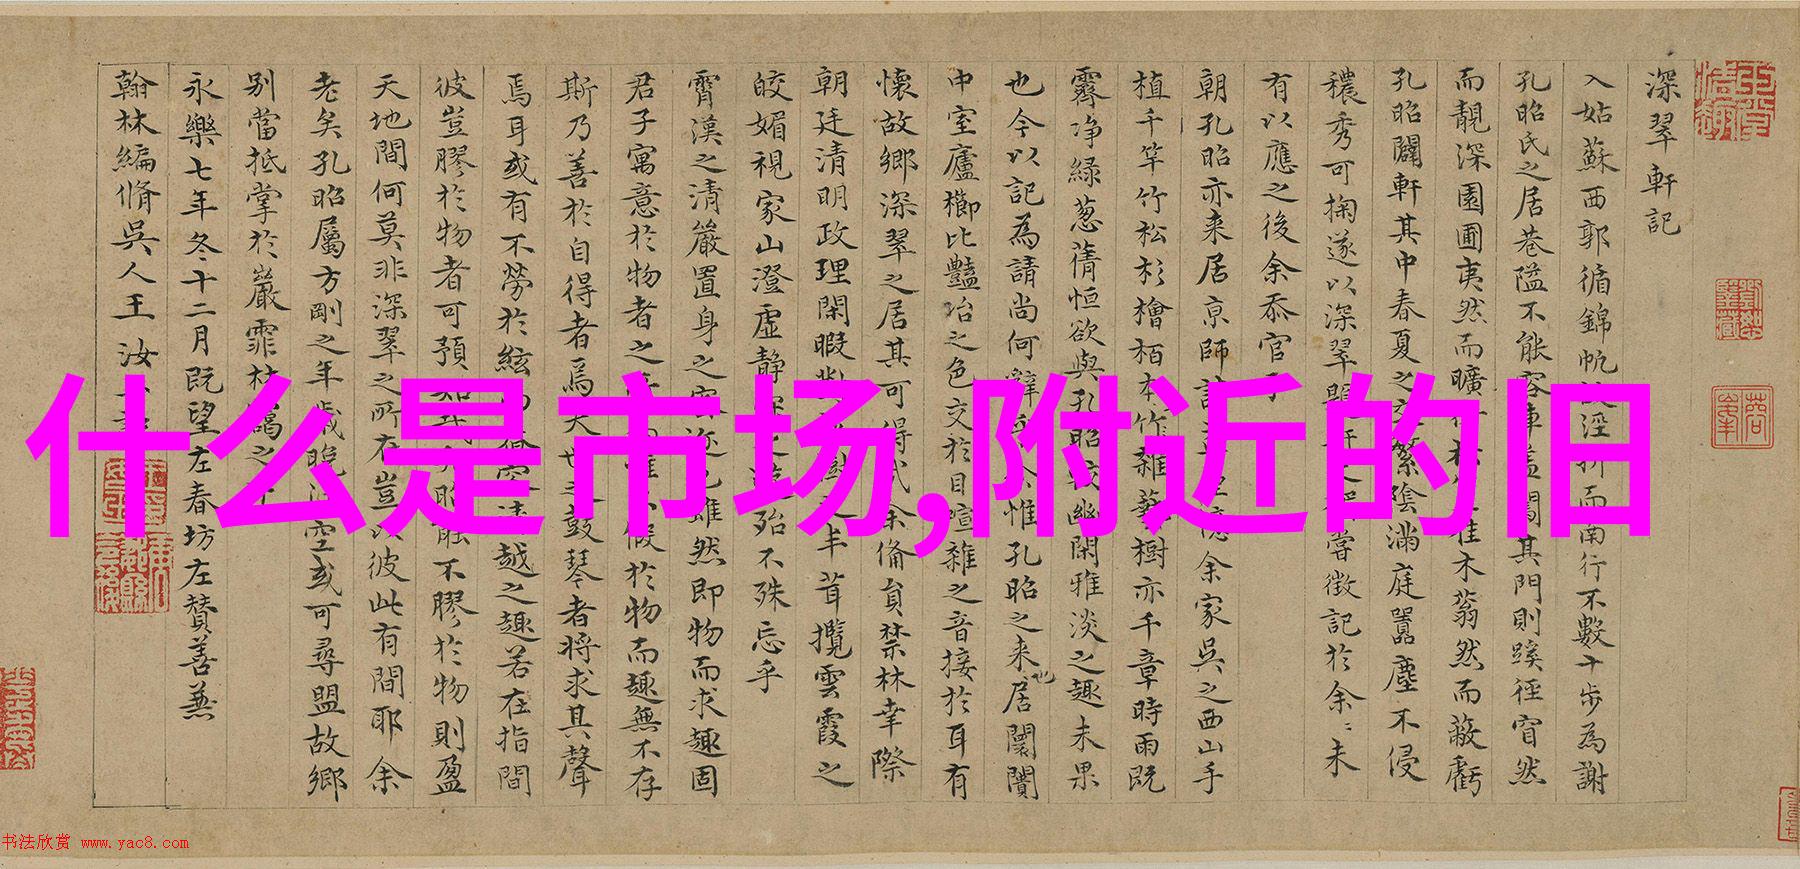 什么是市场,附近的旧
深翠軒記
入姑蘇西郭循錦帆涇折而南行不數十步為謝
孔昭氏之居巷隘不能容車蓋闢其門則蹊徑窅然
而靚深園圃夷然而曠佳木蓊然而蔽虧
孔昭闢軒其中春夏之交繁陰滿庭囂塵不侵
穠秀可掬遂以深翠嘗徵記於余〻未
有以應之後余忝官
朝孔昭亦来居京師余家吳之西山手
植千竿竹松杉檜栢本竹雜華樹亦千章時雨既
霽净緑葱蒨恒欲與孔昭幽閑雅淡之趣未果
也今以記為請尚何惟孔昭之来居闤闠
中室廬櫛比豔冶之色交於目喧雜之音接於耳有
懷故鄉深翠之居其可得余備員禁林幸際
朝廷清明政理閑暇攬雲霞之
皎媚視家山澄虛静殆不殊忘乎
霄漢之清嚴置身之雖然即物而求趣固
君子寓意於物者之假於物而趣無不存
斯乃善於自得者焉夫鼓琴者將求其聲
焉耳或有不勞於絃越之趣若在指間
彼豈膠於物者可預不膠於物則盈
天地間何莫非深翠之所在豈以彼此有間耶余
老矣孔昭屬方剛之年歲晚空或可尋盟故鄉
别當抵掌於巖霏林靄之
永樂七年冬十二月既望左春坊左賛善兼
翰林編脩吳人王汝
书法欣赏 www.yac8.com